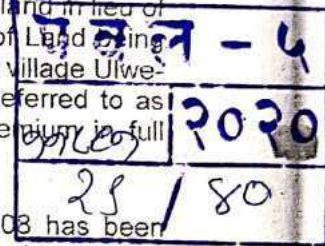 land in lieu of
of Land being
village Ulwe-
eferred to as
emium in full
08 has been
प व ल - ५
२०२०
२९ / ४०